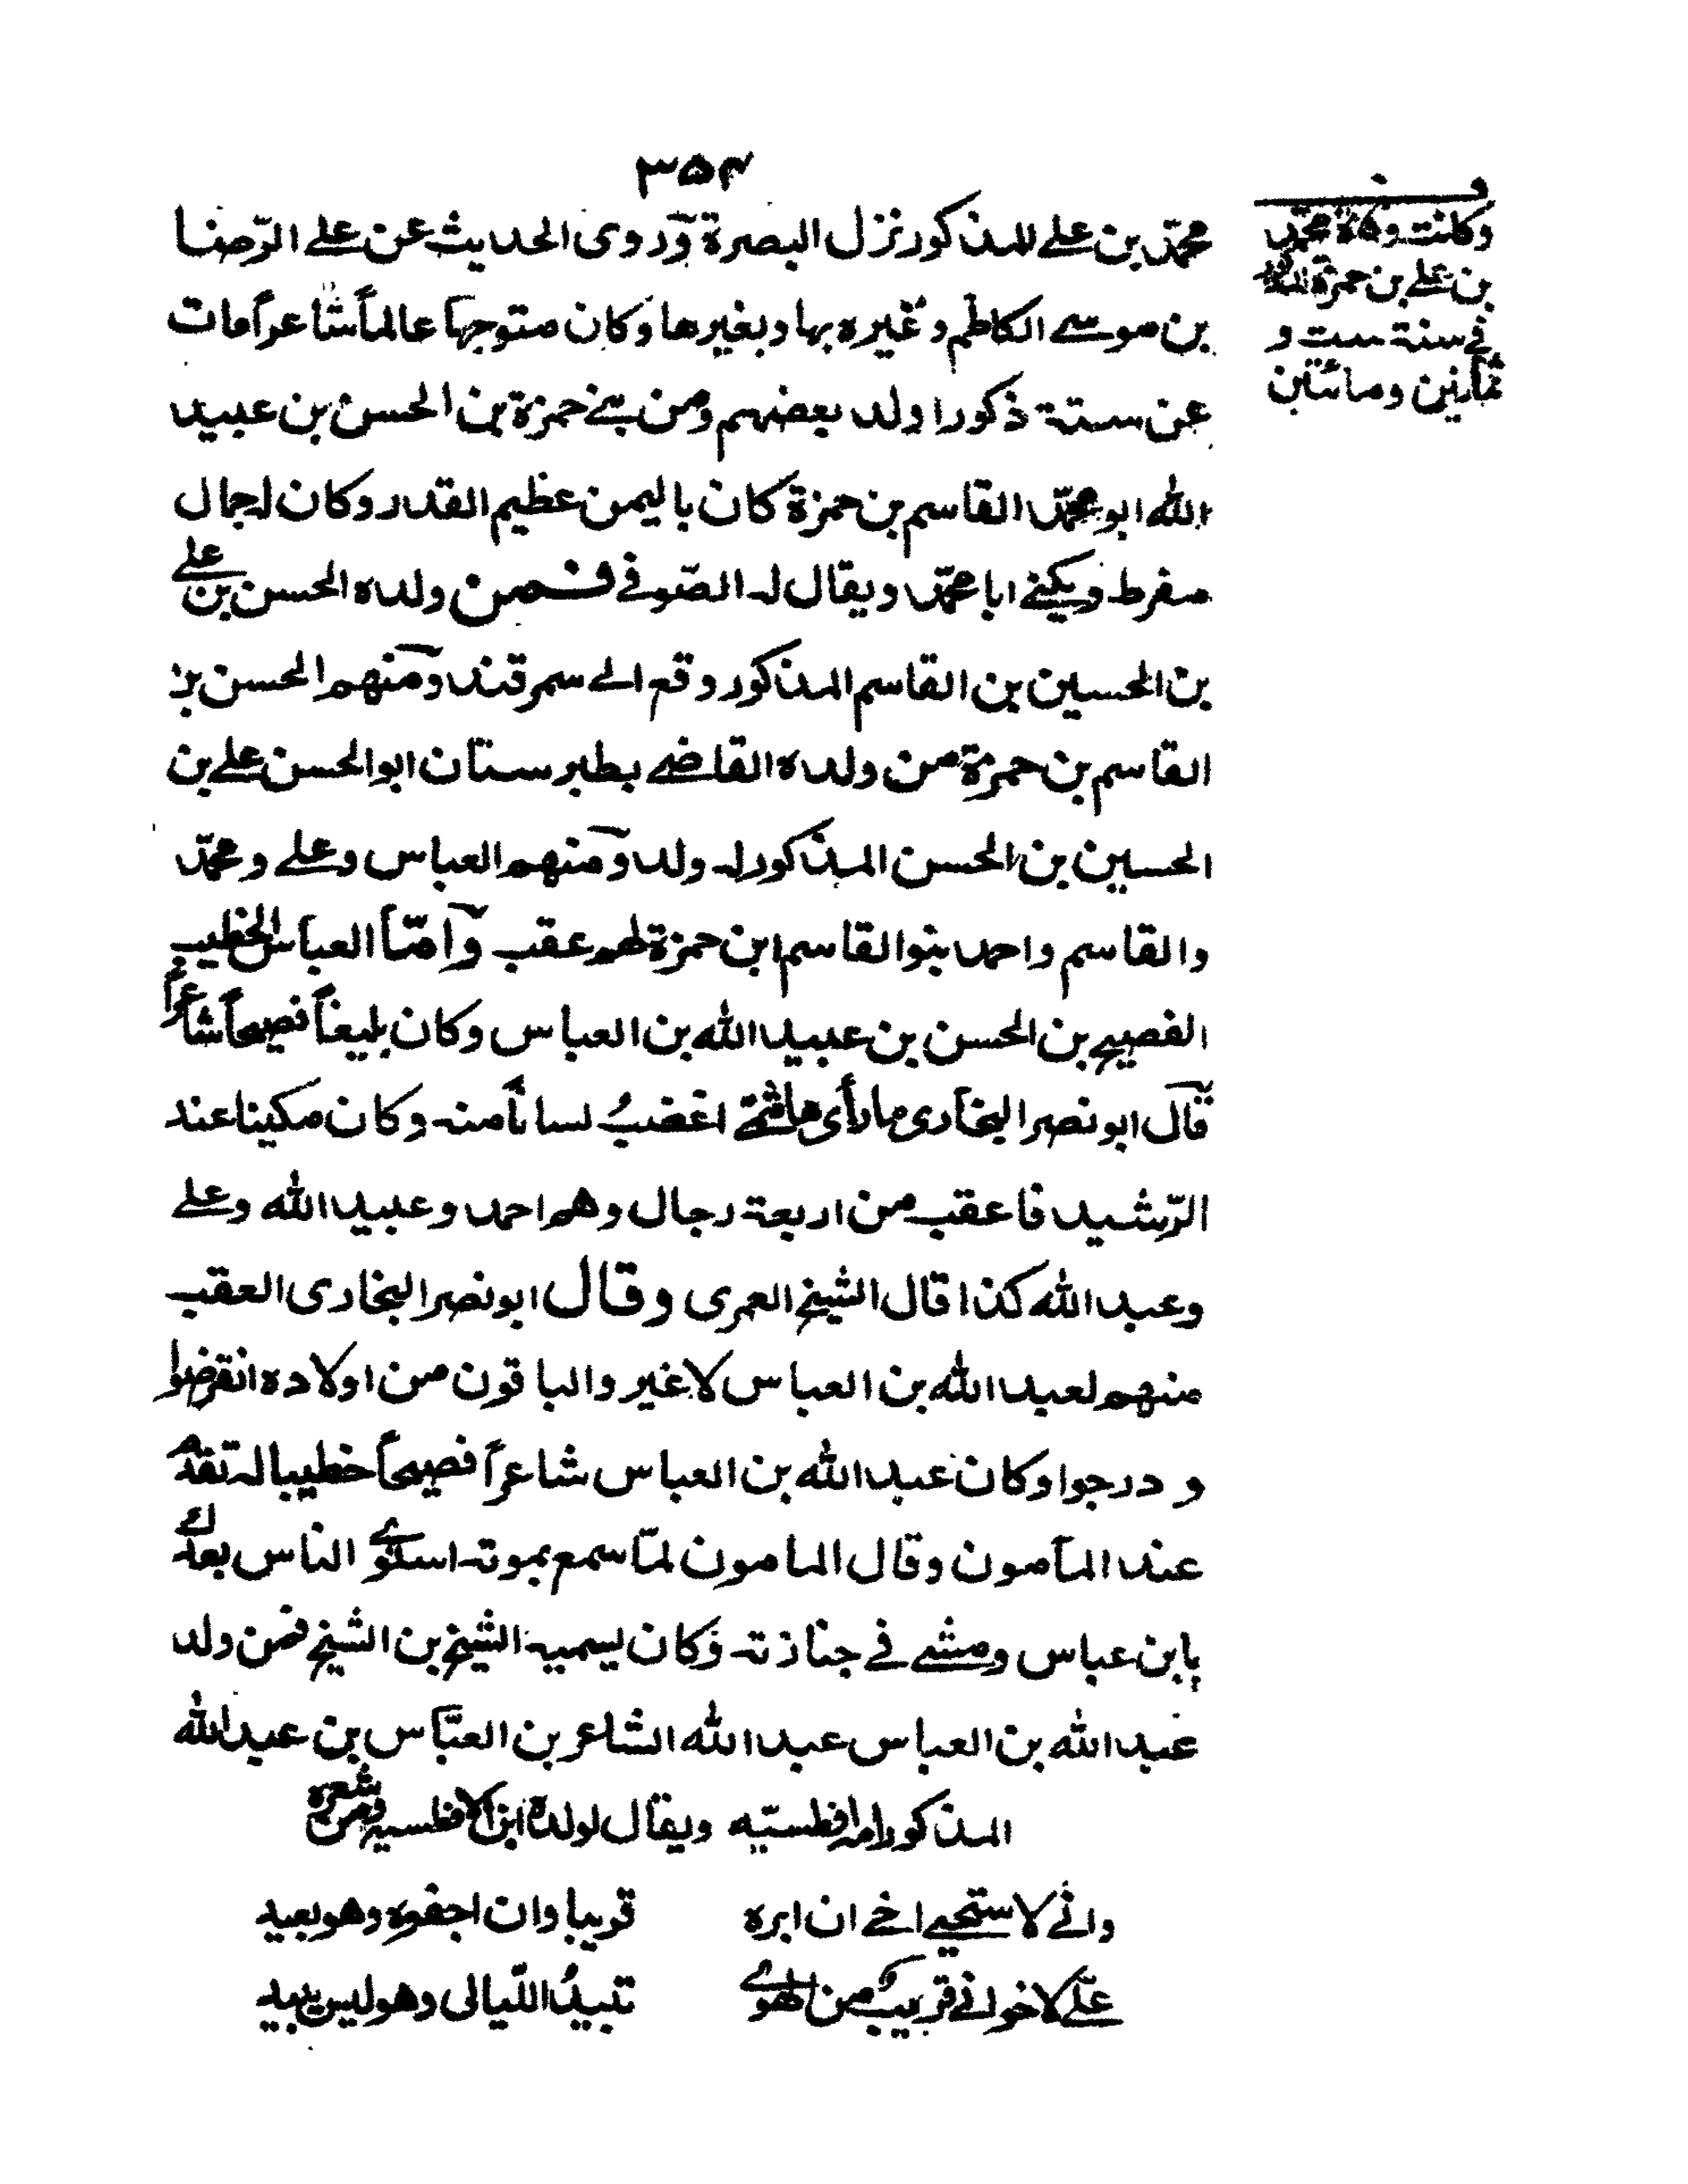 ۳۵۴
محمّد بن علے المذكور نزل البصرة وروى الحديث عن علے الرّضا
بن موسے الكاظم وغيره بها وبغيرها وكان متوجها عالماً شاعراً مات
عن ستة ذكورا ولد بعضهم ومن بنے حمزة بن الحسن بن عبيد
الله ابو محمّد القاسم بن حمزة كان باليمن عظيم القدر وكان لہ جمال
مفرط ويكنے ابا محمّد ويقال لہ الصّوفے فمن ولده الحسن بن علے
بن الحسين بن القاسم المذكور وقع الے سمرقند ومنهم الحسن بن
القاسم بن حمزة من ولده القاضے بطبرستان ابو الحسن علے بن
الحسين بن الحسن المذكور لہ ولد ومنهم العباس وعلے ومحمّد
والقاسم واحمد بنوا القاسم ابن حمزة لهم عقب وامّا العباس الخطيب
الفصيح بن الحسن بن عبيد الله بن العباس وكان بليغاً فصيحاً شاعراً
قال ابو نصر البخارى ما رأى هاشمے اغضبُ لساناً منہ وكان مكينا عند
الرّشيد فاعقب من اربعة رجال وهم احمد وعبيد الله وعلے
وعبد الله كذا قال الشيخ العمرى وقال ابو نصر البخارى العقب
منهم لعبد الله بن العباس لا غير والباقون من اولاده انقرضوا
و درجوا وكان عبد الله بن العباس شاعراً فصيحاً خطيبا لہ تقدم
عند المآمون وقال المامون لمّا سمع بموتہ استوے الناس بعدك
يا بن عباس ومشے فے جنازتہ وكان يسميہ الشيخ بن الشيخ فمن ولد
عبد الله بن العباس عبد الله الشاعر بن العبّاس بن عبد الله
المذكور امہ افطسيّہ ويقال لولده ابن الافطسيہ ومن شعره
وانے لاستحيے اخے ان ابره قريبا وان اجفوه وهو بعيد
علے لاخوانے قريبٌ من الهوے تبيدُ اللّيالى وهو ليس يبيد
وكانت وفاة محمّد
بن علے بن حمزة
فے سنة ست و
ثمانين ومائتين